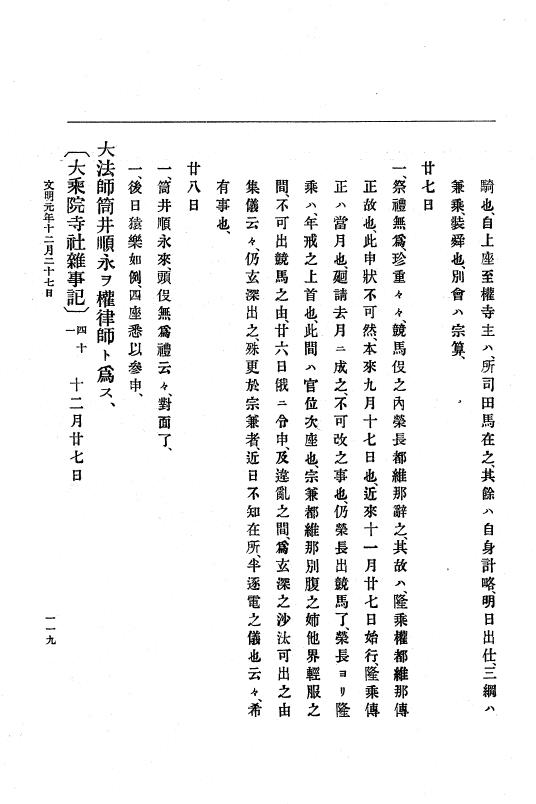 騎也、自上座至權寺主ハ、所司田馬在之、其餘ハ自身計略、明日出仕、三綱ハ
兼乘、裝舜也、別會ハ宗算、
廿七日
一、祭禮無爲、珍重々々、競馬伇之內榮長都維那辭之、其故ハ、隆乘權都維那傳
正故也、此申狀不可然、本來九月十七日也、近來十一月廿七日始行、隆乘傳
正ハ當月也、廻請去月ニ成之、不可改之事也、仍榮長出競馬了、榮長ヨリ隆
乘ハ、年戒之上首也、此間ハ官位次座也、宗兼都維那別腹之姉他界輕服之
間、不可出競馬之由、廿六日俄ニ令申、及違亂之間、爲玄深之沙汰可出之由
集儀云々、仍玄深出之、殊更於宗兼者、近日不知在所、半逐電之儀也云々、希
有事也、
廿八日
一、筒井順永來、頭伇無爲禮云々、對面了、
一、後日猿樂如例、四座悉以參申、
大法師筒井順永ヲ權律師ト爲ス、
〔大乘院寺社雜事記〕四十一 十二月廿七日
文明元年十二月二十七日
一一九